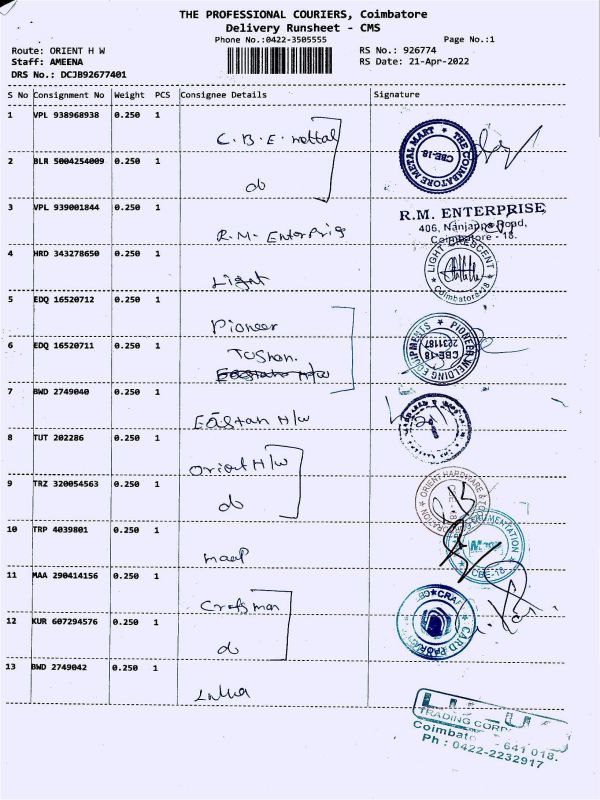 THE PROFESSIONAL COURIERS, Coimbatore
Delivery Runsheet - CMS
Phone No.:0422-3505555 Page No.:1
Route: ORIENT H W RS No.: 926774
Staff: AMEENA RS Date: 21-Apr-2022
DRS No.: DCJB92677401
S No Consignment No Weight PCS Consignee Details Signature
1 VPL 938968938 0.250 1 C.B.E.
THE COIMBATORE METAL MART ★ CBE-18
2 BLR 5004254009 0.250 1 do
3 VPL 939001844 0.250 1 R.M. Enterpris
R.M. ENTERPRISE,
406, Nanjappa Road,
Coimbatore - 18.
4 HRD 343278650 0.250 1 Light
LIGHT CRESCENT
Coimbatore-18
5 EDQ 16520712 0.250 1 Pioneer
PIONEER WELDING EQUIPMENTS ★ CBE-18 2231187
6 EDQ 16520711 0.250 1
7 BWD 2749040 0.250 1 H/W
8 TUT 202286 0.250 1 Orient H/w
9 TRZ 320054563 0.250 1 do
ORIENT HARDWARE &
10 TRP 4039801 0.250 1
CBE-18
11 MAA 290414156 0.250 1 Crafsman
12 KUR 607294576 0.250 1 do
13 BWD 2749042 0.250 1
TRADING CORP
Coimbato 641 018.
Ph : 0422-2232917